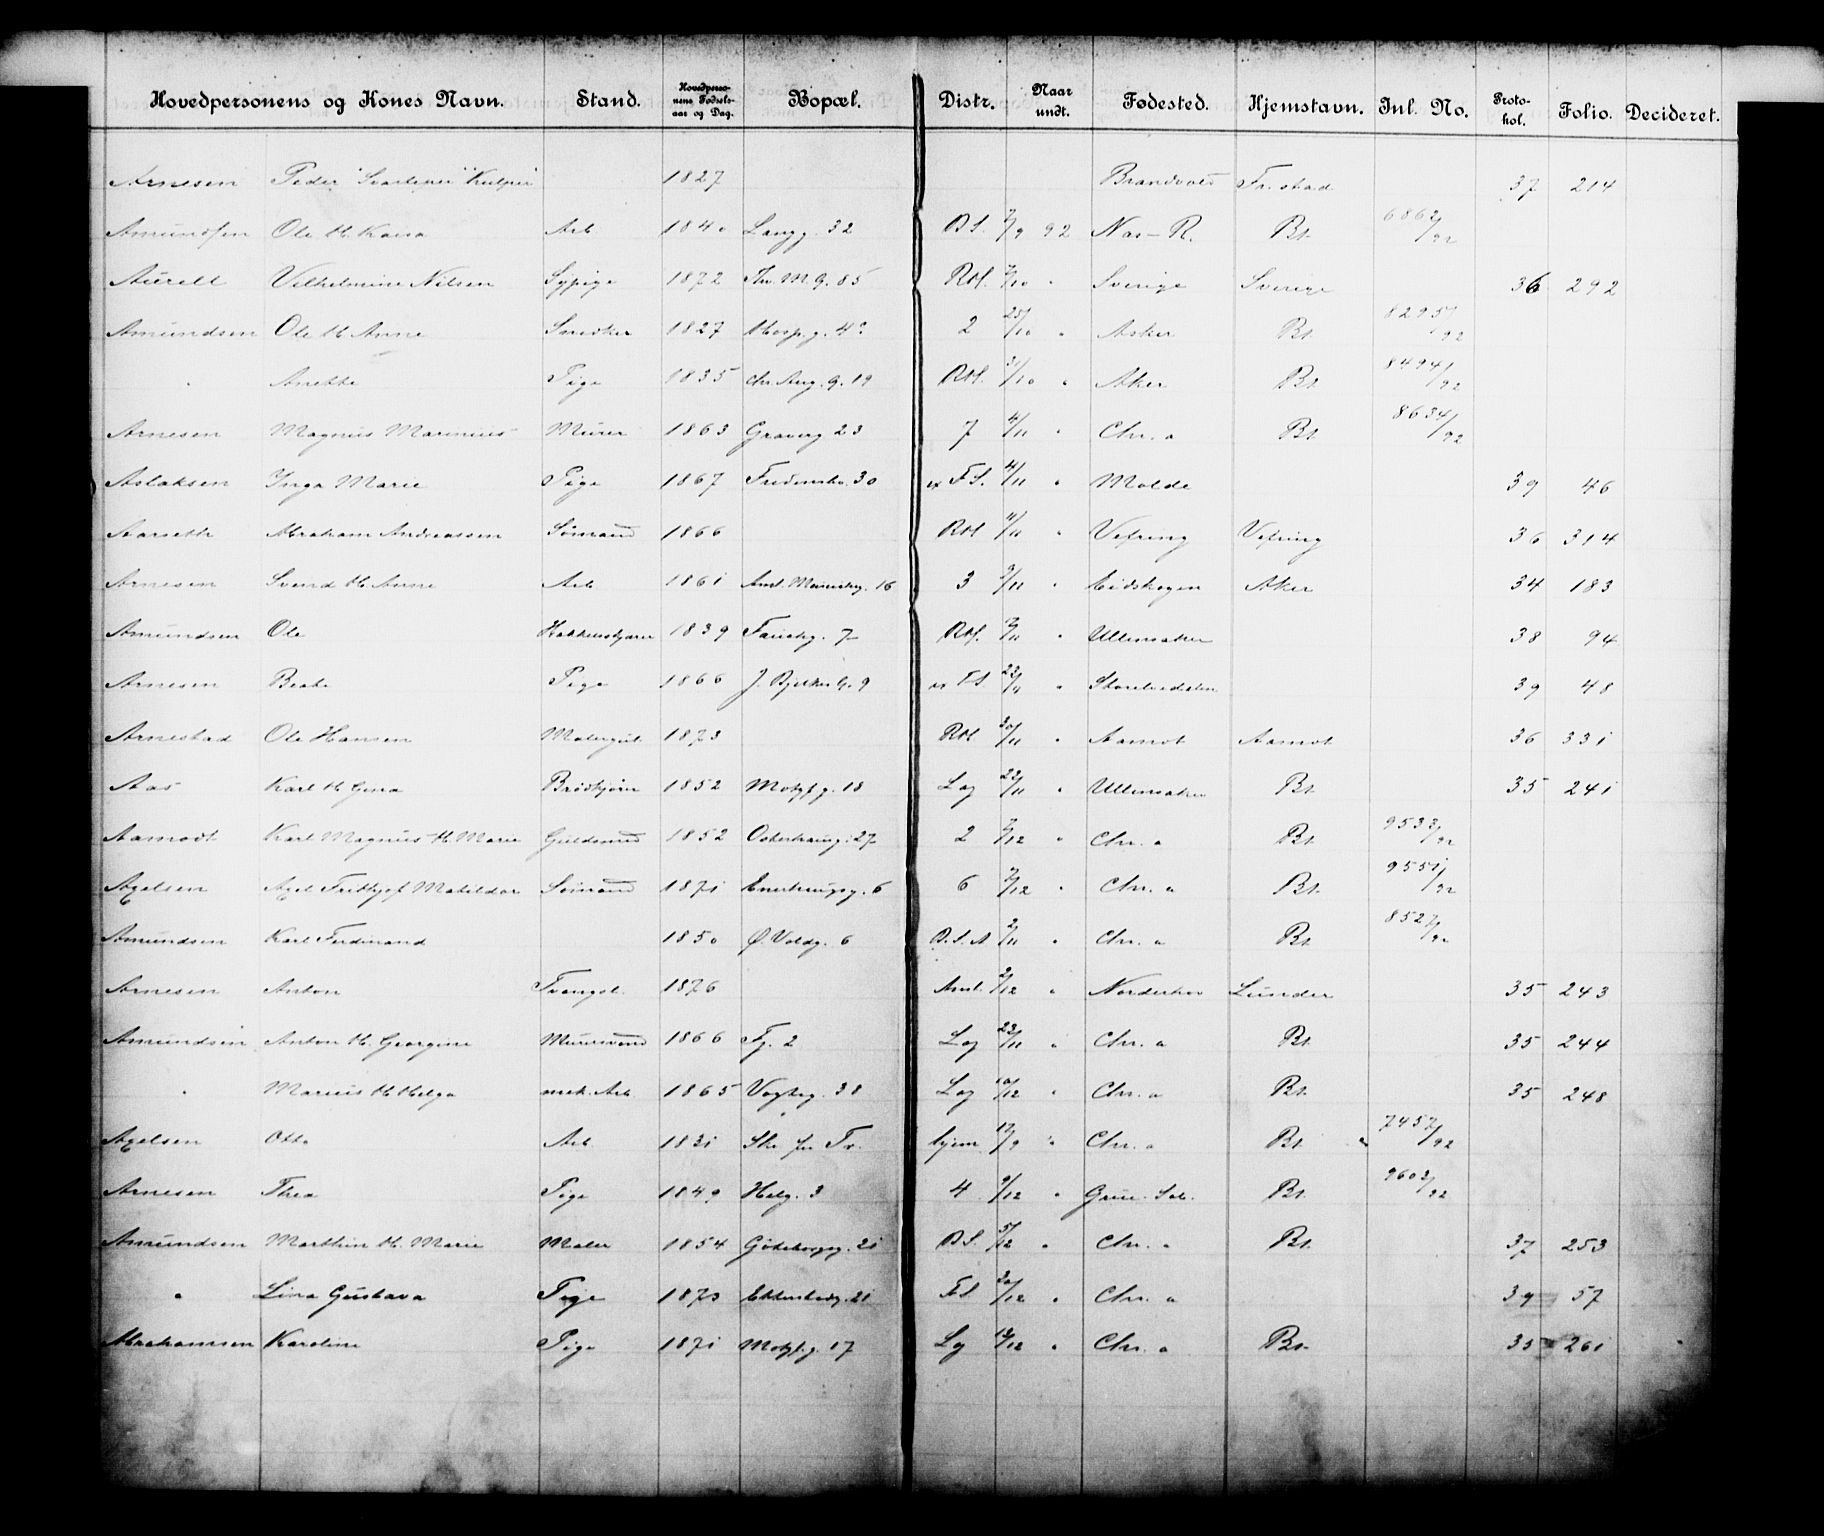 Hovedpersonens og Kones Navn. Stand. Hovedperso-nens Fødsels-aar og Dag. Bopæl. Distr. Naar undt. Fødested. Hjemstavn. Inl. No. Proto-kol. Folio. Decideret.
Arnesen Peder 1827 Brandvold Fr.stad 37 214
Amundsen Ole H. Arb 1840 Langg. 32 B.S. 7/9 92 Nes-R. Bt. 6862/92
Aurell Vilhelmine Nilsen Sypige 1872 Th. M. g. 85 RH. 7/10 " Sverige Sverige 36 292
Amundsen Ole H. Anne Snedker 1827 Hospg. 2 25/10 " Asker Bt. 8295/92
" Anette Pige 1835 Chr. Aug. g. 19 RH. 31/10 " Aker Bt. 8494/92
Arnesen Magnus Marinius Murer 1863 Graverg 23 7 4/11 " Chr.a Bt 8634/92
Aslaksen Inga Marie Pige 1867 Fredensbo. 30 F.S. 4/11 " Molde 39 46
Aarseth Abraham Andreassen Sømand 1866 RH " Vefring Vefring 36 314
Arnesen Svend H. Anne Arb 1861 16 3 9/11 " Eidskogen Aker 34 183
Amundsen Ole 1839 7 RH. " Ullensaker 38 94
Arnesen Beate Pige 1866 9 F.S. 22/11 " 39 48
Arnestad Ole Hansen Malergut. 1873 RH 30/11 " Aamot Aamot 36 331
Aas Karl H Gina Brødkjører 1852 Motzf.g. 18 Lag 22/11 " Ullensaker Bt 35 241
Aamodt Karl Magnus H. Marie Guldsmed 1852 27 2 7/12 " Chr.a Bt 9533/92
Axelsen Axel Frithjof Matildar Sømand 1871 Enerhaugsg. 6 6 7/12 " Chr.a Bt. 9551/92
Amundsen Karl Ferdinand 1850 Ø. Voldg. 6 B.S.A 2/11 " Chr.a Bt 8527/92
Arnesen Anton Tvangsl. 1876 Anst. 2/12 " Norderhov Lunder 35 243
Amundsen Anton H. Georgine Murersvend 1866 Tg. 2 Lag 23/11 " Chr.a Bt. 35 244
" Marius H Helga mek. Arb 1865 Vogtsg. 38 Lag 10/12 " Chr.a Bt. 35 248
Axelsen Otto Arb 1831 hjem 17/9 " Chr.a Bt 7457/92
Arnesen Thea Pige 1849 Helg. 3 4 9/12 " Grue. Sol. Bt. 9603/92
Amundsen Marthin H. Marie Maler 1854 Göteborgg. 21 B.S. 5/12 " Chr.a Bt. 37 253
" Lina Gustava Pige 1873 21 F.S. 20/12 " Chr.a 39 57
Abrahamsen Karoline Pige 1871 Motzf.g. 17 Lg 12 " Chr.a Bt. 35 261